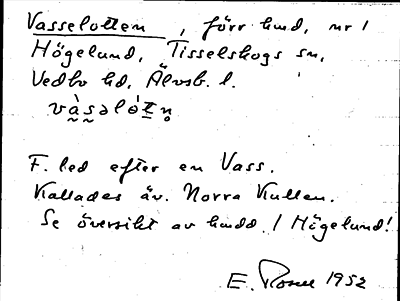 Vasselotten, förr hmd, nr 1
Högelund, Tisselskogs sn,
Vedbo hd, Älvsb. l.
F. led efter en Vass.
Kallades äv. Norra Kullen.
Se översikt av hmdd. / Högelund!
E. Rosell 1952